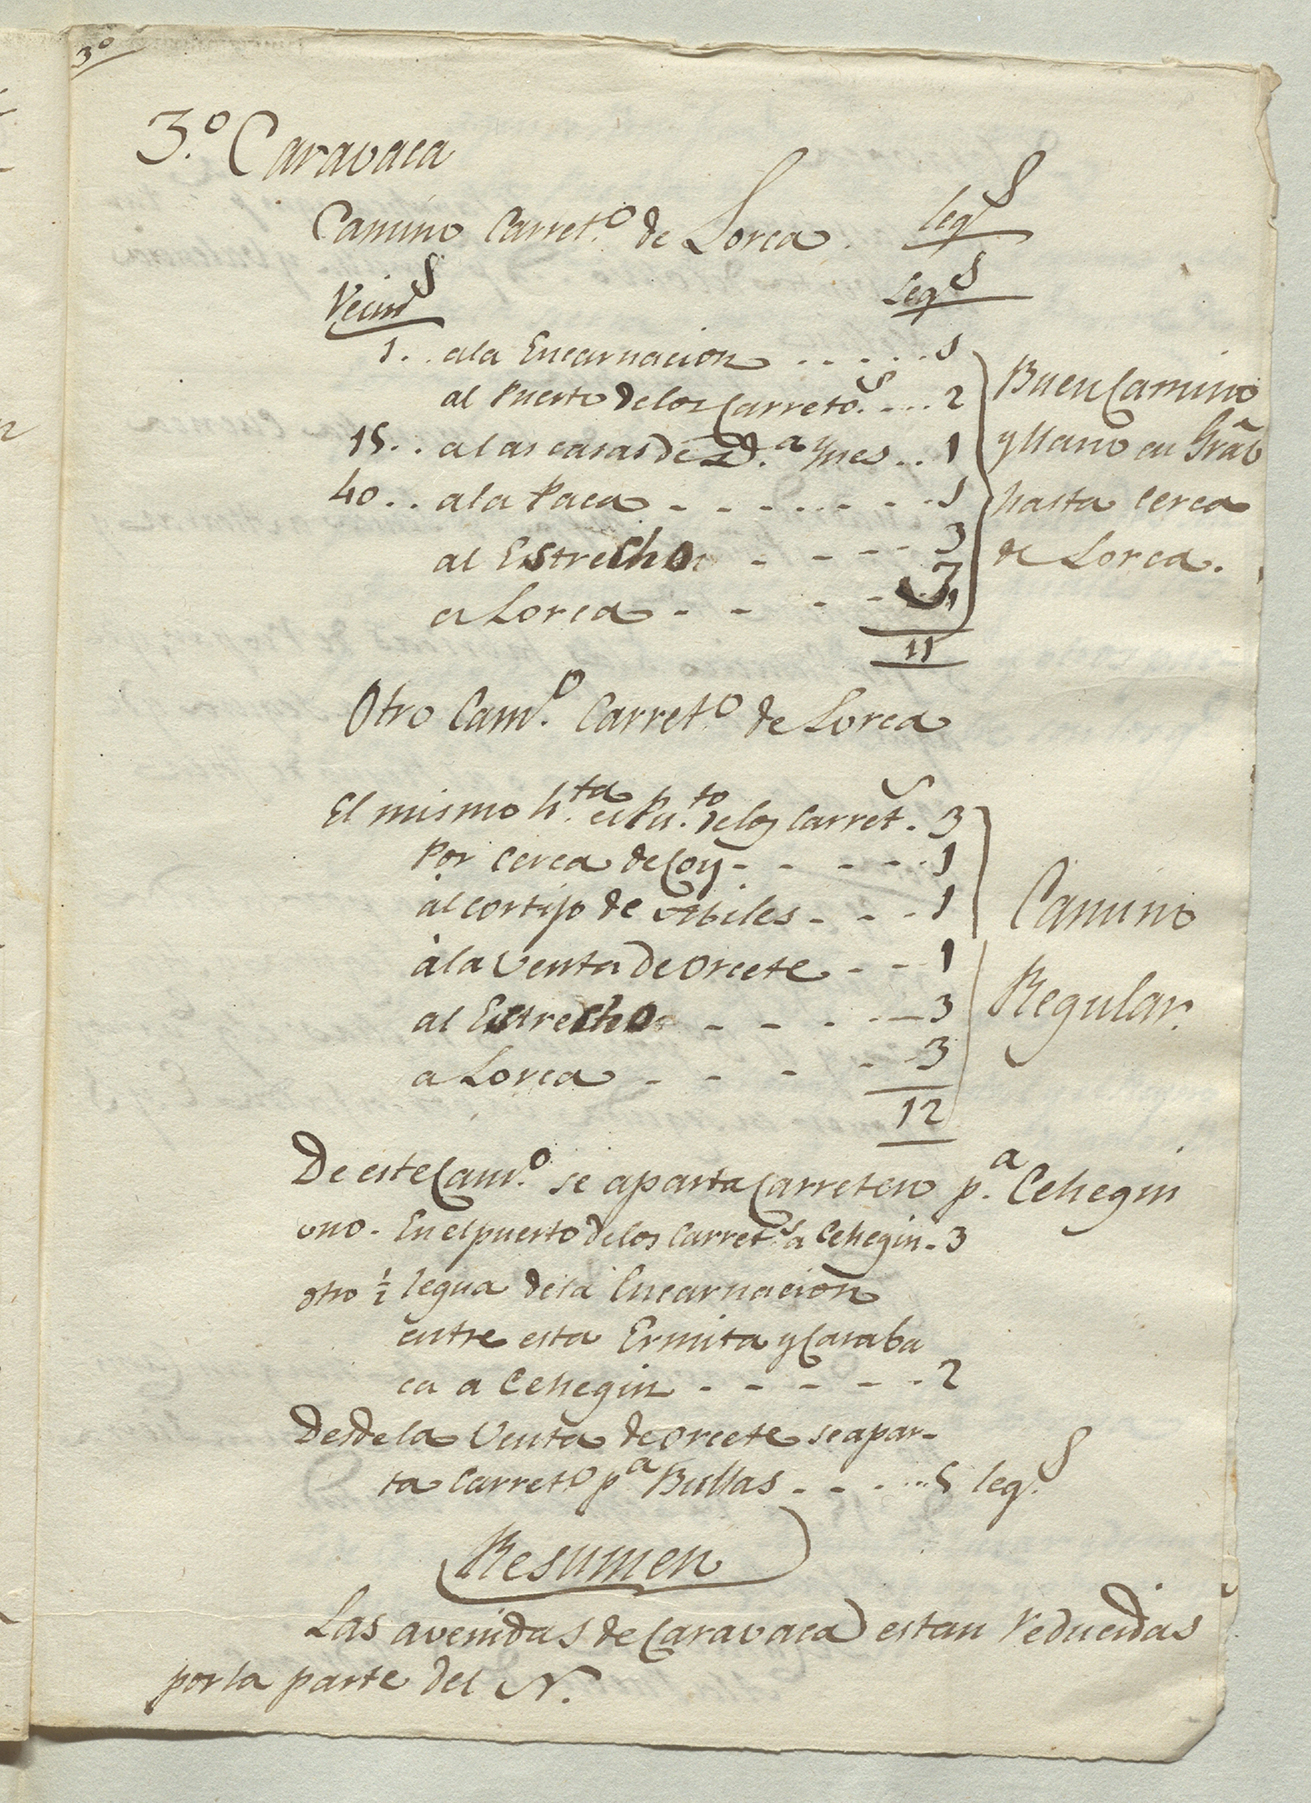 3º
3.º Caravaca
Camino Carret.º de Lorca. leg.s
Vecin.s Leg.s
1.. a la Encarnacion ..... 1
al Puerto de los Carreto.s .... 2
15.. a las casas de D.a Ynes .. 1
40.. a la Paca - - - ... - - - 1
al Estrecho - - - - 3
a Lorca - - - - 3
11
Buen Camino
y llano en Gral
hasta cerca
de Lorca.
Otro Cam.º Carret.º de Lorca
El mismo h.ta el Pu.to de los Carret.s 3
Por cerca de Coy - - - - - 1
àl cortijo de Abiles - - - 1
à la Venta de Orcete - - 1
al Estrecho - - - - 3
a Lorca - - - - 3
12
Camino
Regular.
De este Cam.º se aparta Carretero p.a Cehegin
uno. En el puerto de los Carret.s a Cehegin - 3
otro ½ legua de la Encarnacion
entre esta Ermita y Caraba
ca a Cehegin - - - - - - 2
Desde la Venta de Orcete se apar-
ta Carret.º p.a Bullas - - - ... 5 leg.s
Resumen
Las avenidas de Caravaca estan reducidas
por la parte del N.